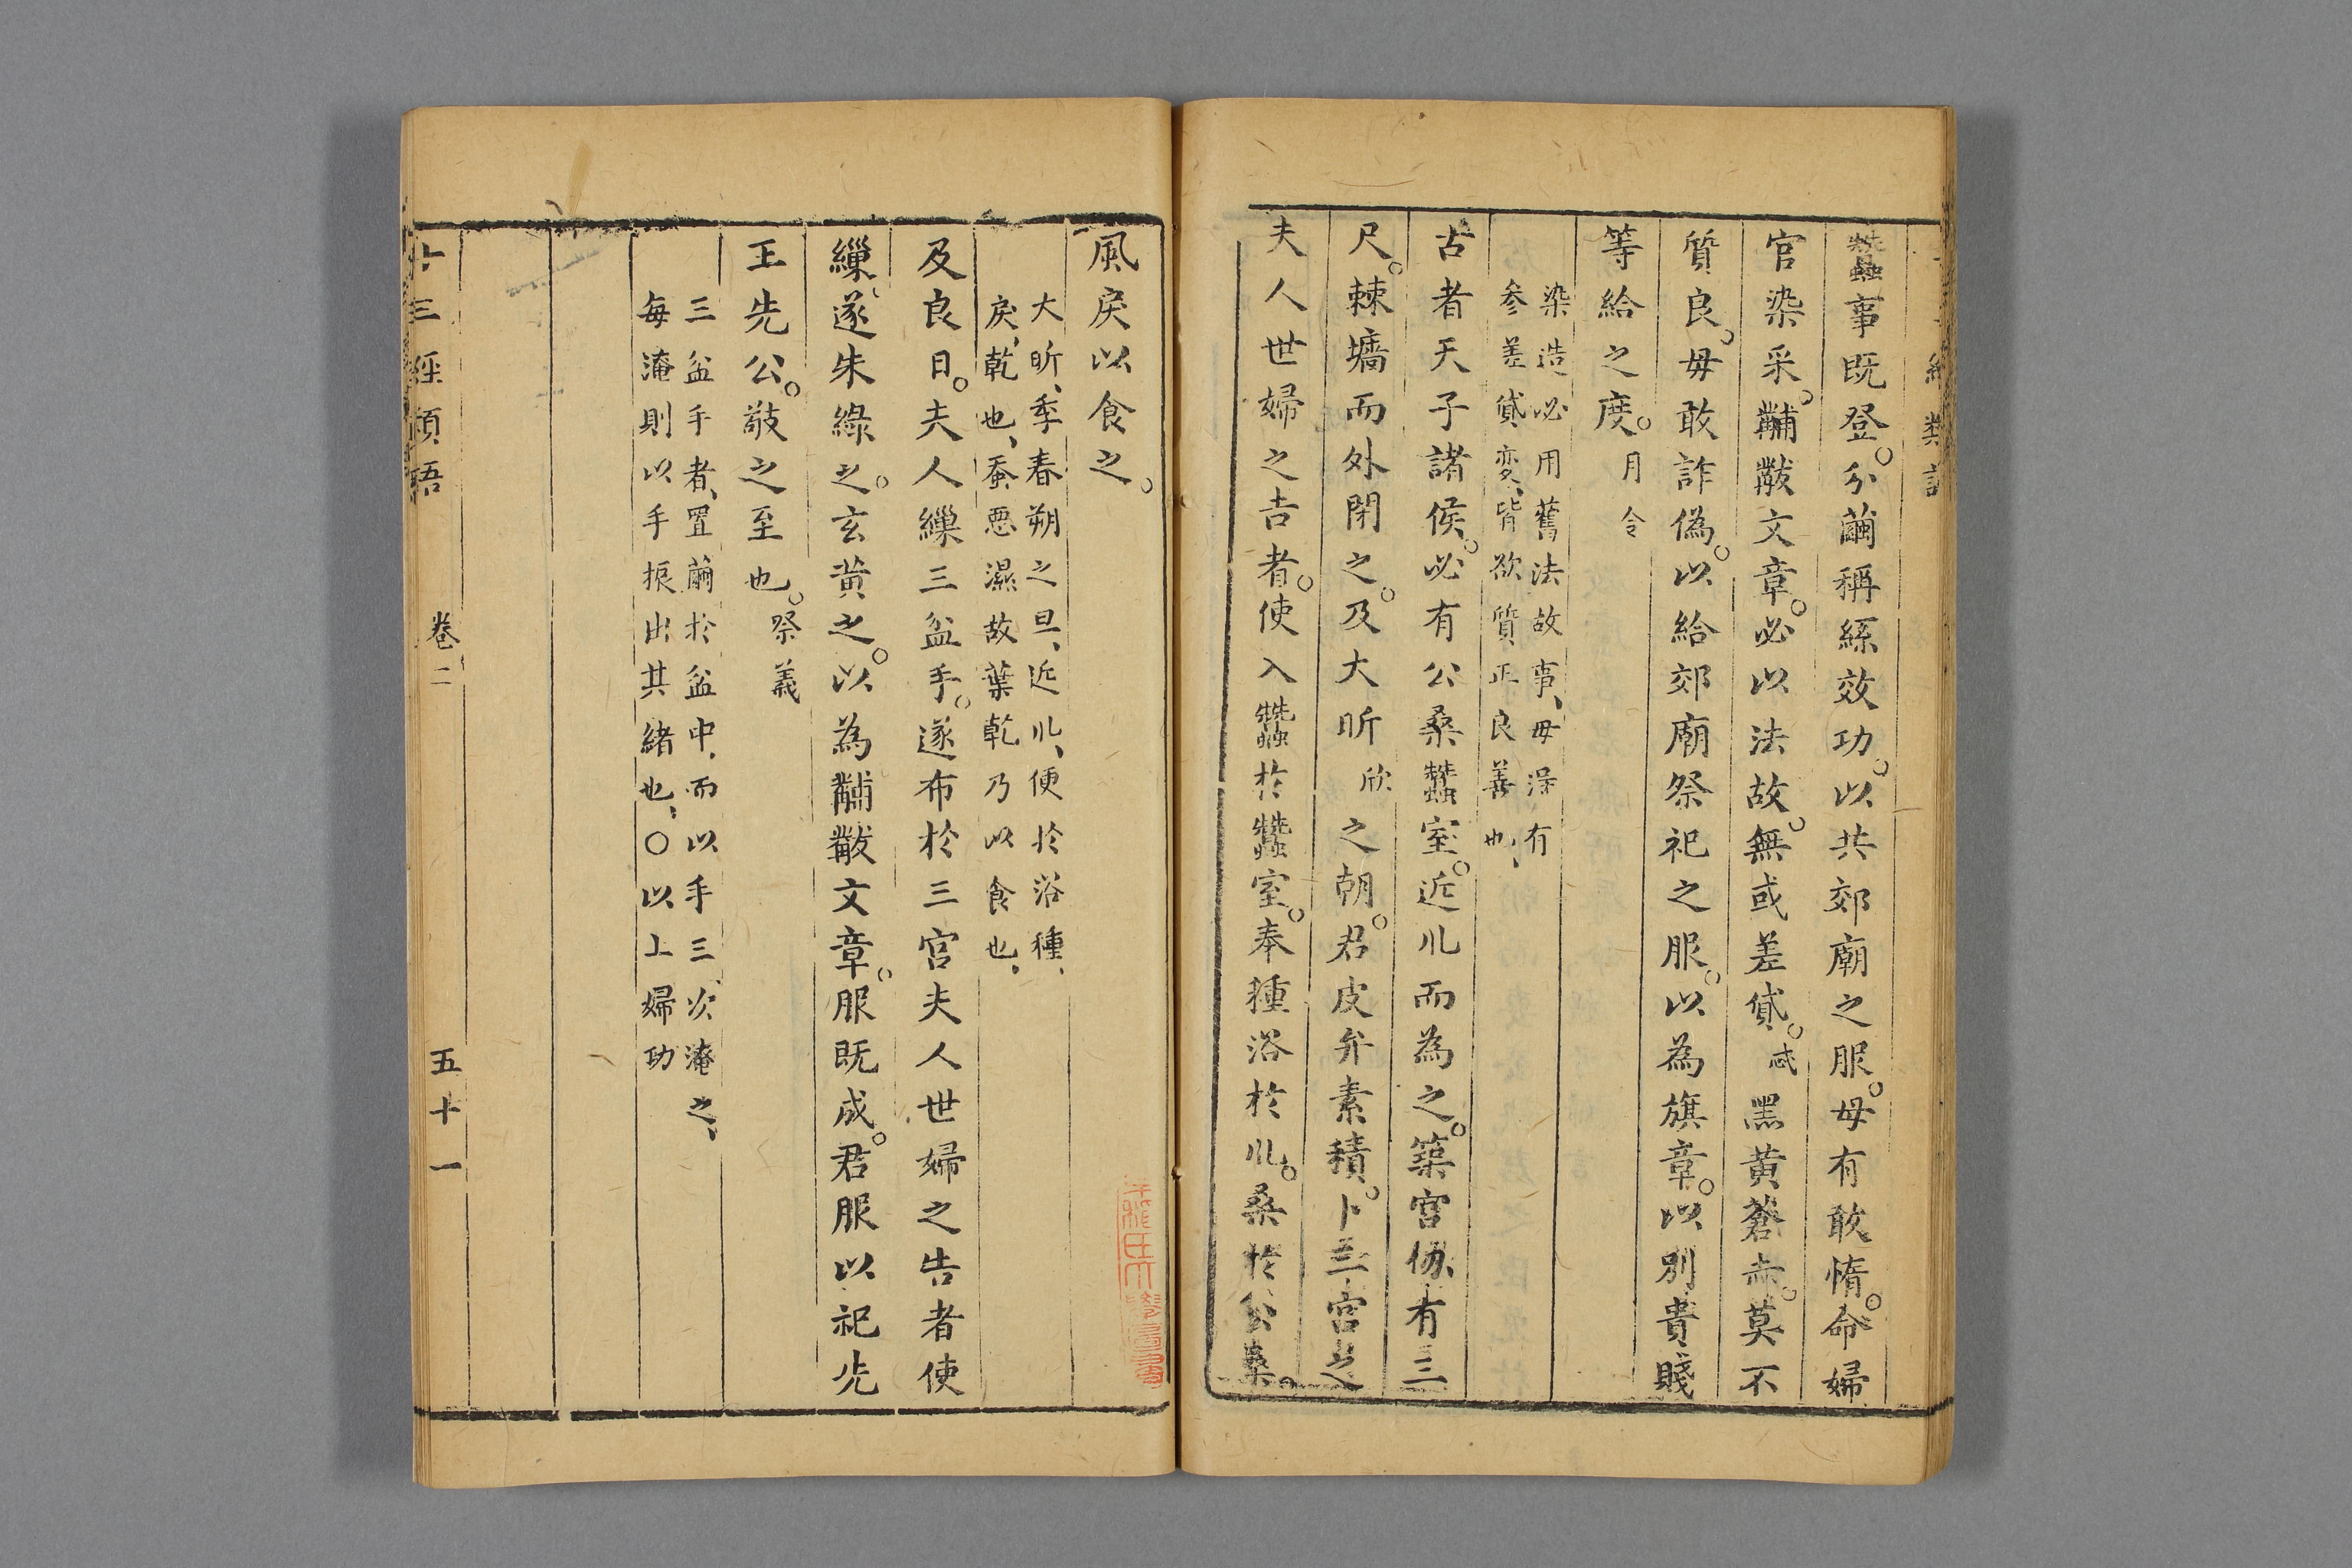 蠶事既登。分繭稱絲效功。以共郊廟之服。毋有敢惰。命婦
官染采。黼黻文章。必以法故。無或差貸。忒黑黃蒼赤。莫不
質良。毋敢詐偽。以給郊廟祭祀之服。以為旗章。以別貴賤
等給之度。月令
染造必用舊法故事、毋淂有
參差貸変、皆欲質正良善也、
古者天子諸侯。必有公桑蠶室。近川而為之。築宮仞有三
尺。棘墻而外閉之。及大昕欣之朝。君皮弁素積。卜三宮之
夫人世婦之吉者。使入蠶於蠶室。奉種浴於川。桑於公桑。
風戾以食之。
大昕、季春朔之旦、近川、便於浴種、
戾、乾也、蚕惡濕故葉乾乃以食也、
及良日。夫人繅三盆手。遂布於三宮夫人世婦之吉者使
繅。遂朱綠之。玄黃之。以為黼黻文章。服既成。君服以祀先
王先公。敬之至也。祭義
三盆手者、置繭於盆中、而以手三次淹之、
每淹則以手振出其緒也、○以上婦功
十三經類語
卷二
五十一